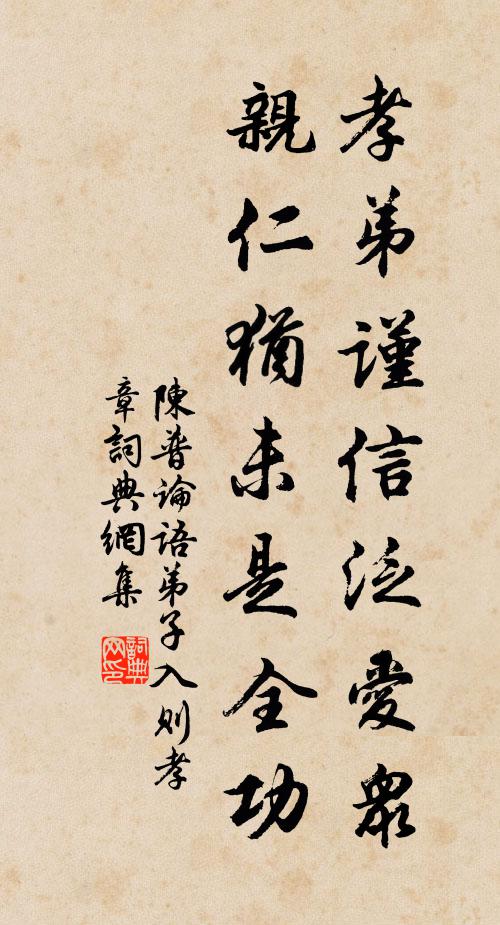 孝弟謹信泛愛衆
親仁猶未是全功
陳普論語弟子入則孝
章詞典網集
詞典网印